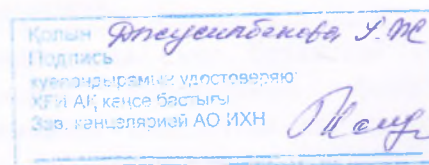 Қолын Джусипбекова У. Ж
Подпись
куәландырамын удостоверяю
ХҒИ АҚ кеңсе бастығы
Зав. канцелярией АО ИХН